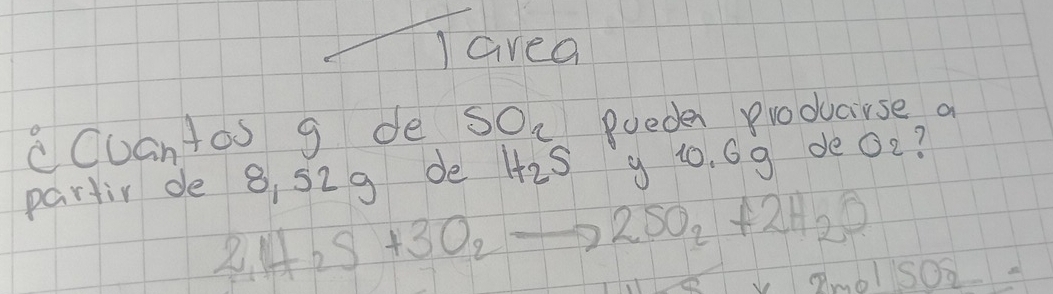 Tarea
¿Cuantos g de SO₂ pueden producirse a
partir de 8,52g de H₂S y 10.6g de O₂?
2H₂S + 3O₂ → 2SO₂ + 2H₂O
2mol SO₂